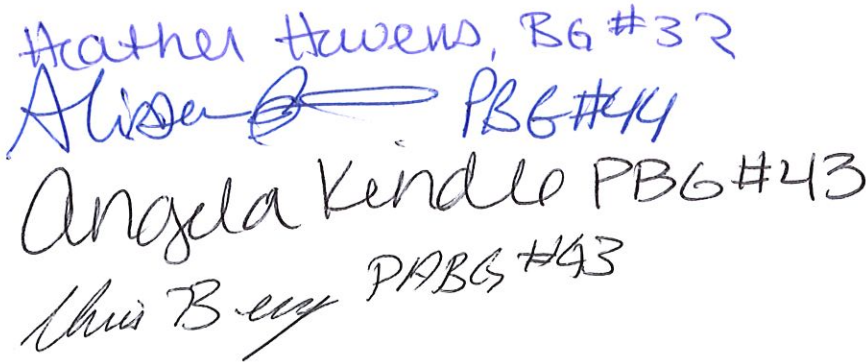 Heather Havens, BG #32
Alissa PBG #44
Angela Kindle PBG #43
Chris Berry PABG #43